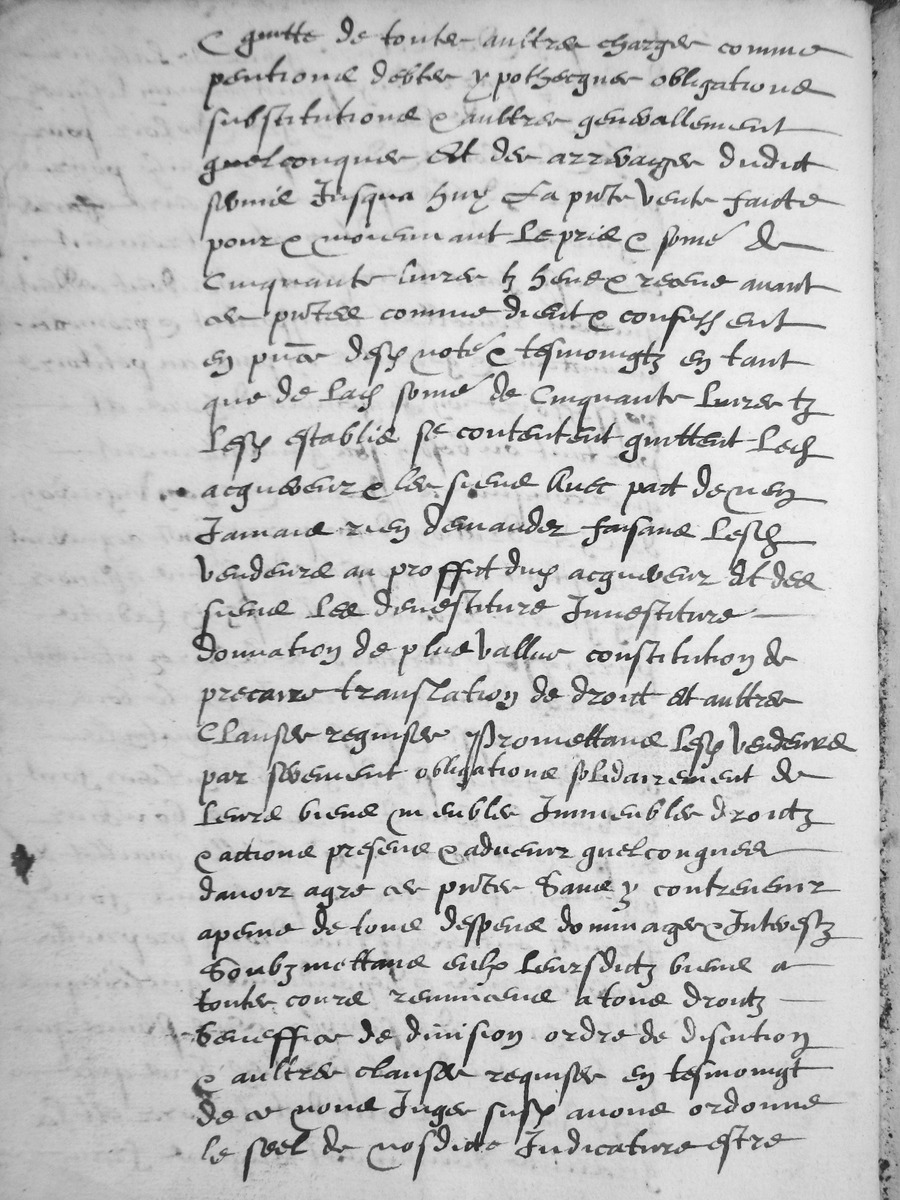 & quitte de toutes aultres charges comme
pentions debtes ypothecques obligations
substitutions & aultres generallement
quelconques Et des arreraiges dudict
servis Jusqua huy La pnte vente faicte
pour & moiennant le pris & some de
Cinquante livres tz heus & receus avant
ces pntes comme dient & confessent
en pnce desd notes & tesmoingtz en tant
que de lad some de Cinquante livres tz
lesd establis se contentent quittent led
acquereur & les siens Avec pact de nen
Jamais rien demander faisans lesd
vendeurs au proffict dud acquereur Et des
siens les devestiture Investiture
donnation de plus vallue constitution de
precaire translation de droict Et aultres
Clauses requises Promettans lesd vendeurs
par serement obligations solidairement de
leurs biens meubles Immeubles droictz
& actions presens & advenir quelconques
davoir agre ces pntes Sans y contrevenir
apeine de tous despens dommages & Interestz
Soubzmettans eulx leursdictz biens a
toutes cours renuncens a tous droictz
beneffice de division ordre de discution
& aultres clauses requises en tesmoingt
de ce nous Juge susd avons ordonne
le seel de nosdicte Judicature estre